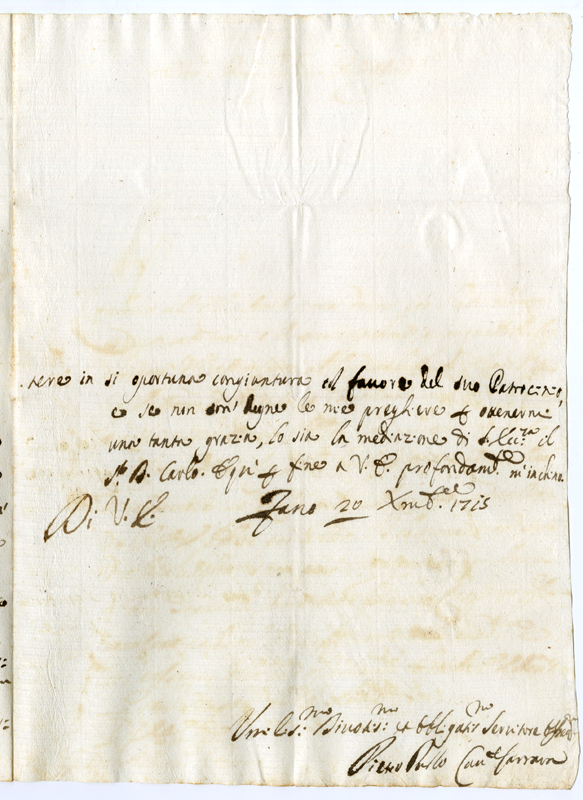 nere in si oportuna congiuntura il favore del suo Patrocinio,
e se non son' degne le mie preghiere p ottenerne
una tanta grazia, lo sia la mediazione di S. Ecc.za il
Sr. D. Carlo. E qui p fine a V. E. profondamte. m'inchino
Di V. E. Fano 20 Xmbre. 1715
Umiliss.mo Divotis.mo et obbligatis.mo Servitore
Pietro